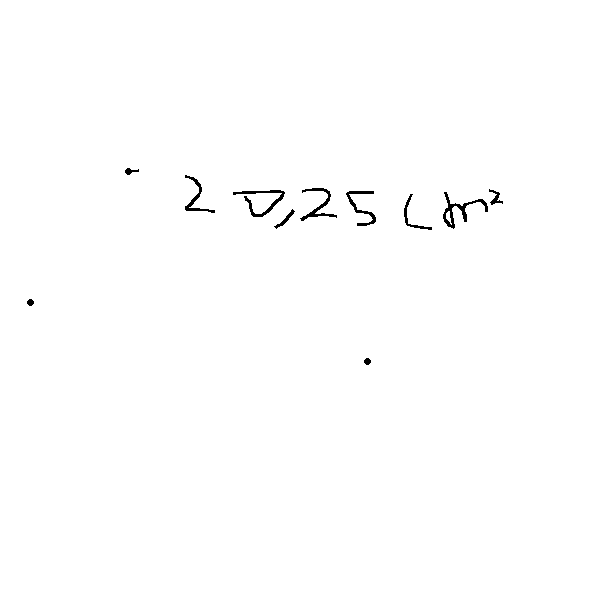 20,25 cm²